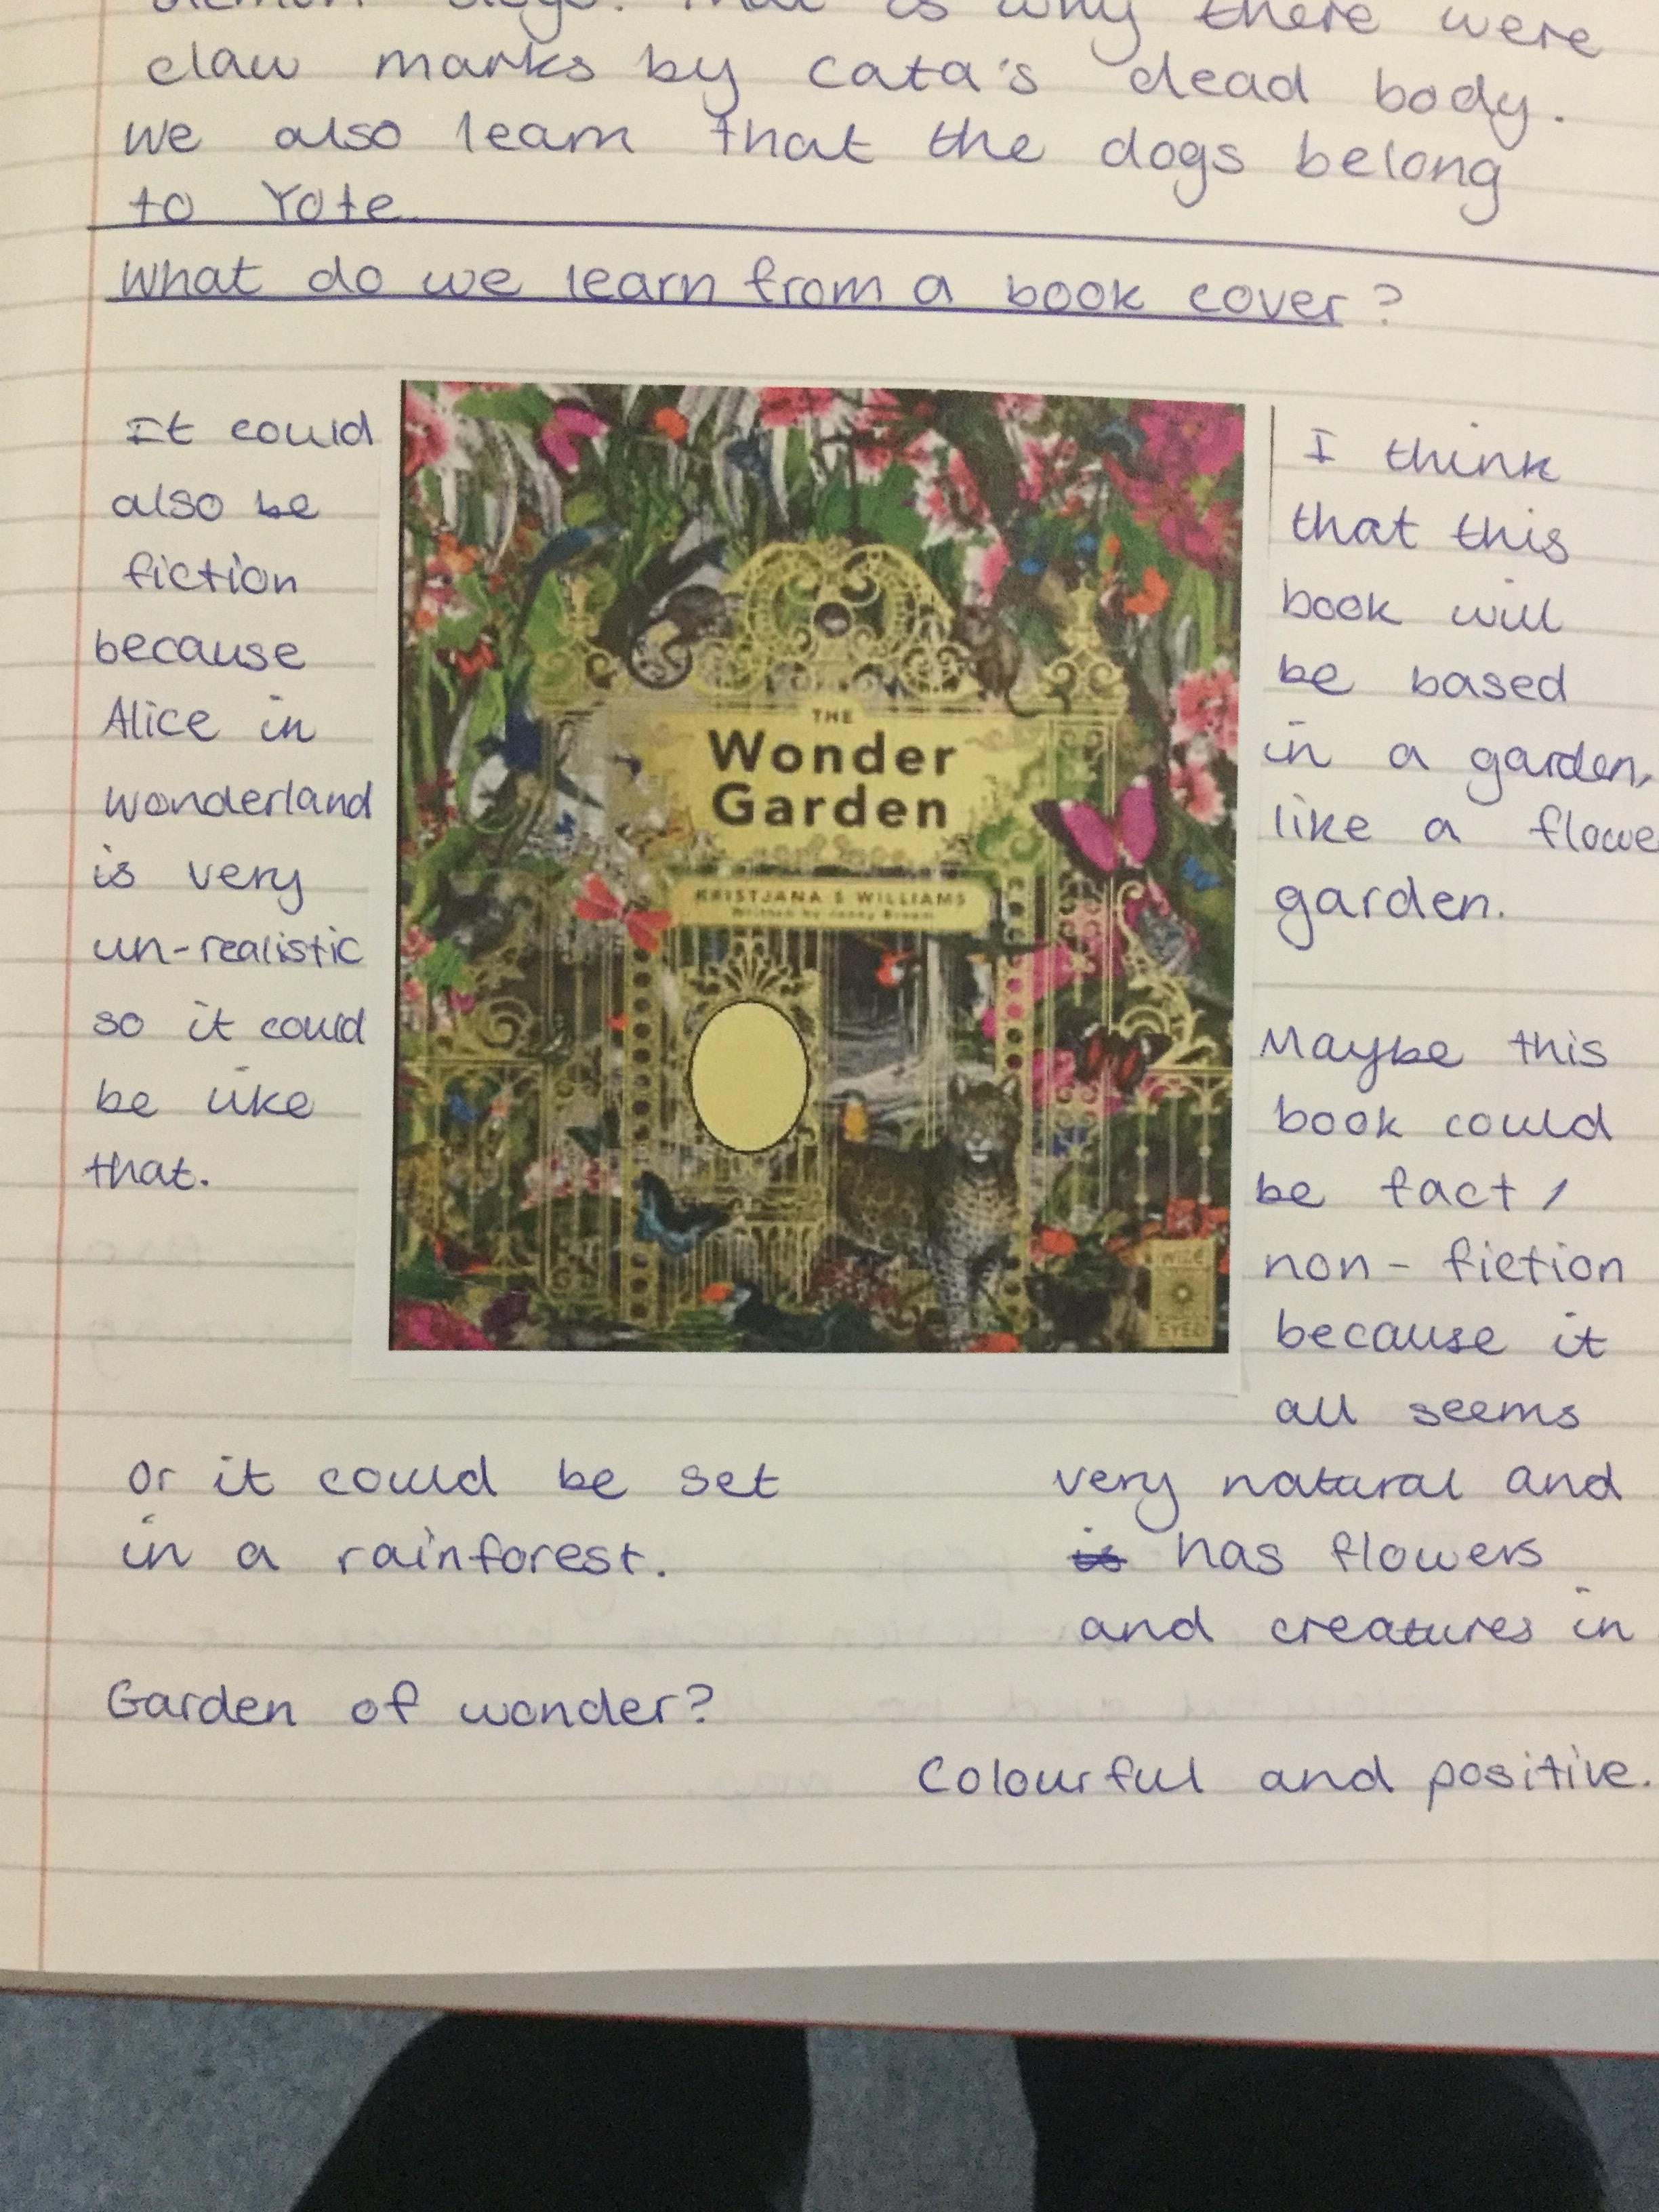 why there were
claw marks by cata's dead body.
we also learn that the dogs belong
to Yote
What do we learn from a book cover?
It could
also be
fiction
because
Alice in
wonderland
is very
un-realistic
so it could
be like
that.
THE
Wonder
Garden
KRISTJANA S WILLIAMS
Written by Jenny Broom
WIDE
EYED
I think
that this
book will
be based
in a garden,
like a flowe
garden.
Maybe this
book could
be fact /
non-fiction
because it
all seems
very natural and
is has flowers
and creatures in
or it could be set
in a rainforest.
Garden of wonder?
Colourful and positive.